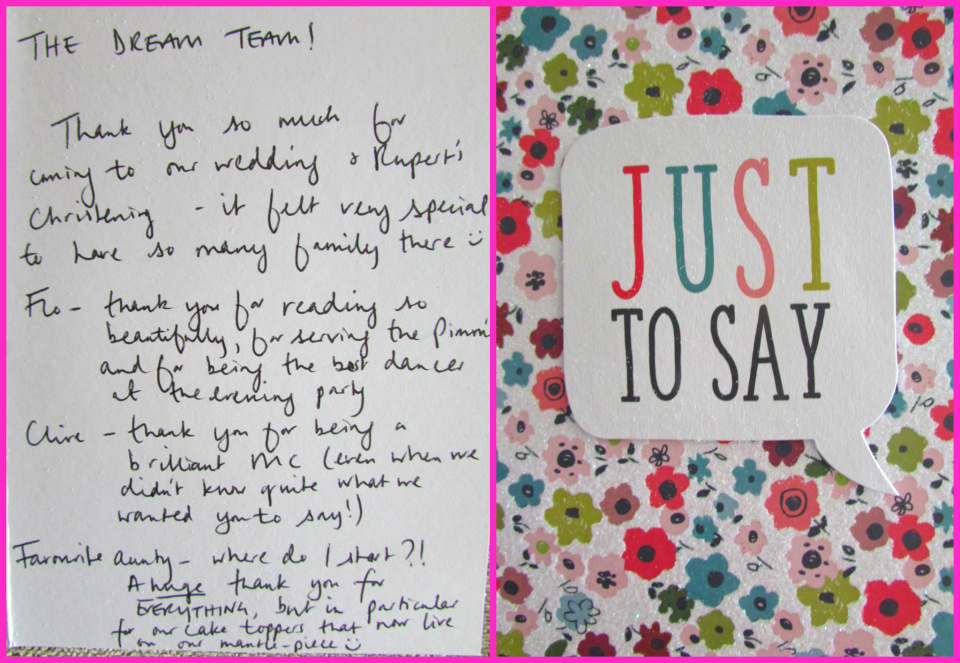 THE DREAM TEAM!
Thank you so much for
coming to our wedding & Rupert's
Christening - it felt very special
to have so many family there
Flo - thank you for reading so
beautifully, for serving the Pimm's
and for being the best dancer
at the evening party
Clive - thank you for being a
brilliant MC (even when we
didn't know quite what we
wanted you to say!)
Favourite aunty - where do I start?!
A huge thank you for
EVERYTHING, but in particular
for our cake toppers that now live
on our mantle-piece
JUST
TO SAY